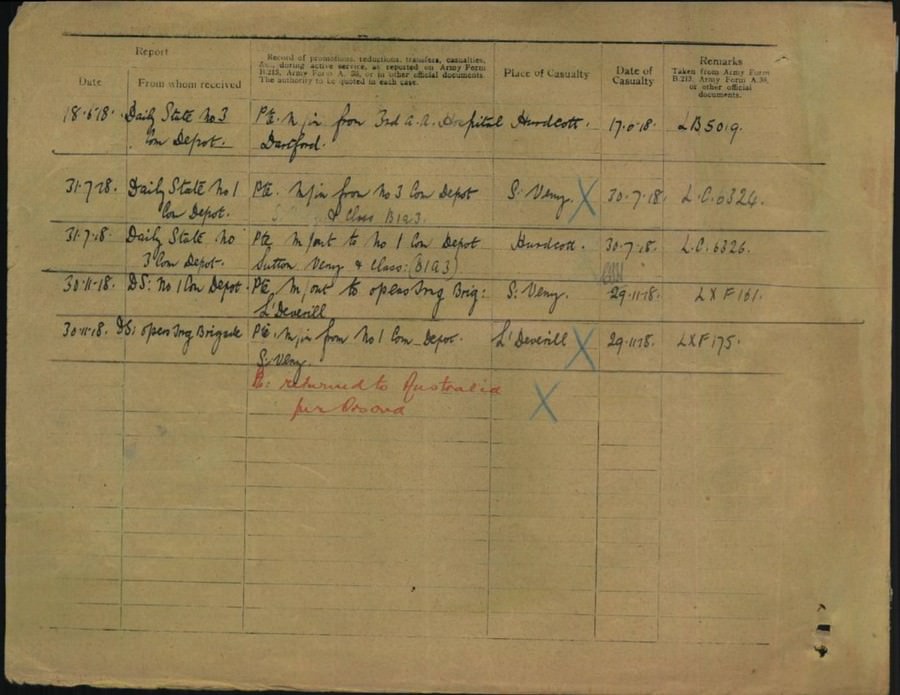 Report
Date
From whom received
Record of promotions, reductions, transfers, casualties,
&c., during active service, as reported on Army Form
B.213, Army Form A. 36, or in other official documents.
The authority to be quoted in each case.
Place of Casualty
Date of
Casualty
Remarks
Taken from Army Form
B.213, Army Form A.36,
or other official
documents.
18·6·18. Daily State No 3 Pte. M/in from 3rd A.A. Hospital Hurdcott. 17·6·18. LB5019.
Com Depot. Dartford.
31·7·18. Daily State No 1 Pte. M/in from No 3 Com Depot S. Veny. X 30·7·18. L.C.6324.
Com Depot. & Class B1a3.
31·7·18. Daily State No Pte M/out to No 1 Com Depot Hurdcott. 30·7·18. L.C.6326.
3 Com Depot. Sutton Veny & Class: (B1a3)
30·11·18. DS: No 1 Com Depot. Pte. M/out to Trng Brig: S. Veny. 29·11·18. LXF161.
L'Deverill
30·11·18. DS: Trng Brigade Pte. M/in from No 1 Com Depot. L'Deverill X 29·11·18. LXF175.
S. Veny.
returned to Australia X
per